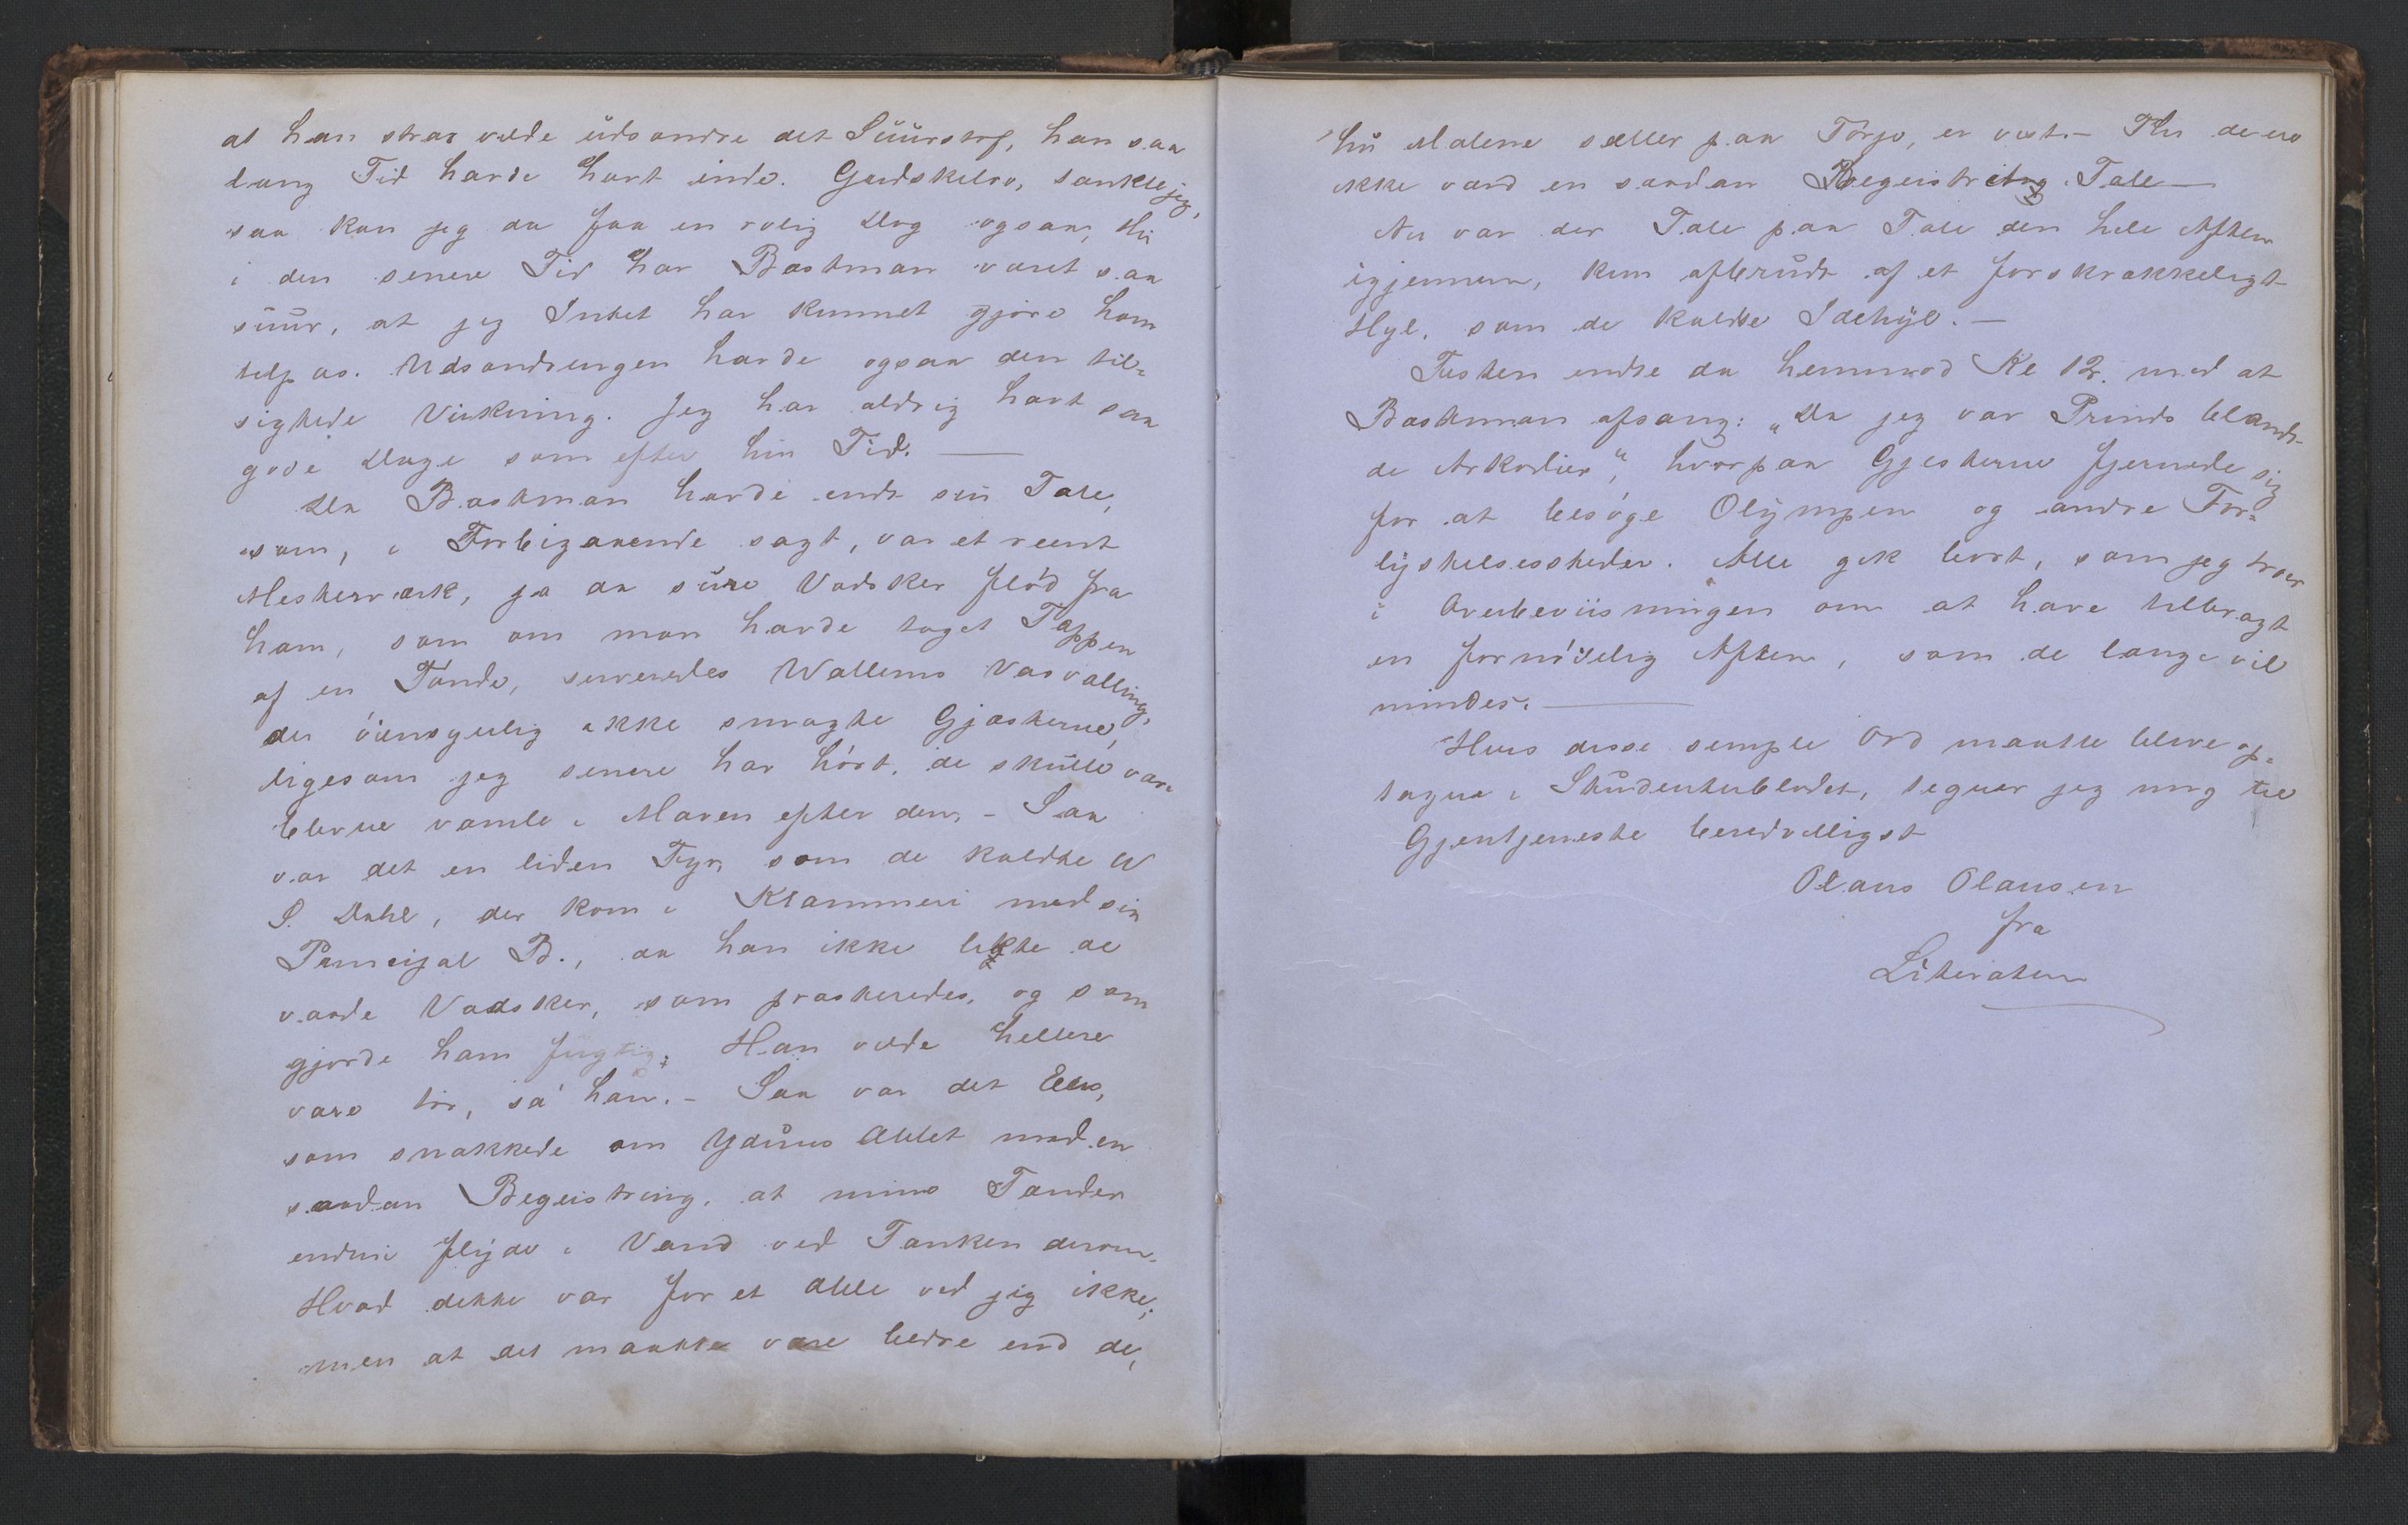 at han strax vilde udsondre det Suurstof, han saa
lang Tid havde havt inde. Gudskelov, tænkte jeg,
saa kan jeg da faa en rolig Dag ogsaa, thi
i den senere Tid har Bestman været saa
suur, at jeg Intet har kunnet gjøre ham
tilpas. Udsondringen havde ogsaa den til-
sigtede Virkning. Jeg har aldrig havt saa
gode Dage som efter hin Tid. —
Da Bestman havde endt sin Tale,
som, i Forbigaaende sagt, var et reent
Mesterværk, ja da sure Vædsker flød fra
ham, som om man havde taget Tappen
af en Tønde, serveredes Wallems Vasvalling,
der øiensynlig ikke smagte Gjæsterne,
ligesom jeg senere har hørt, de skulle være
blevne vamle i Maven efter den. – Saa
var det en liden Fyr, som de kaldte W
S. Dahl, der kom i Klammeri med sin
Principal B., da han ikke likte de
vaade Vædsker, som præsteredes, og som
gjorde ham fugtig. Han vilde hellere
være tør, sa' han. – Saa var det Een,
som snakkede om Yduns Æblet med en
saadan Begeistring, at mine Tænder
endnu flyde i Vand ved Tanken derom.
Hvad dette var for et Æble ved jeg ikke;
men at det maatte være bedre end de,
hu Malene sæller paa Torje, er vist. – Thi de ere
ikke værd en saadan Begeistring. Tale —
Nu var der Tale paa Tale den hele Aften
igjennem, kun afbrudt af et forskrækkeligt
Hyl, som de kaldte Idehyl. —
Festen endte da henimod Kl 12. med at
Bestman afsang: „Da jeg var Prinds blandt
de Arkadier", hvorpaa Gjesterne fjernede sig
for at besøge Olympen og andre For-
lystelsessteder. Alle gik bort, som jeg troer
i Overbeviisningen om at have tilbragt
en fornøielig Aften, som de længe vil
mindes. —
Hvis disse simple Ord maatte blive op-
tagne i Studenterbladet, tegner jeg mig til
Gjentjeneste beredvilligst
Olaus Olausen
fra
Literaten